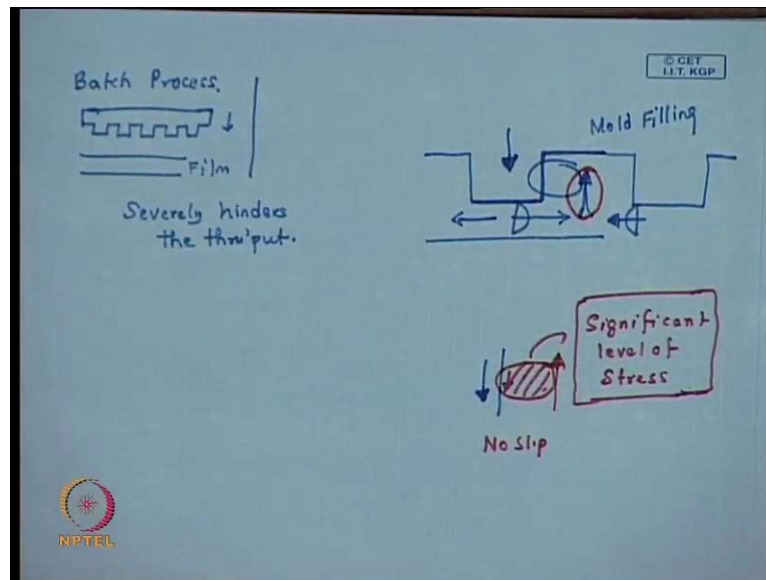 Batch Process.
Film
Severely hinders
the thru'put.
© CET
I.I.T. KGP
Mold Filling
Significant
level of
Stress
No slip
NPTEL